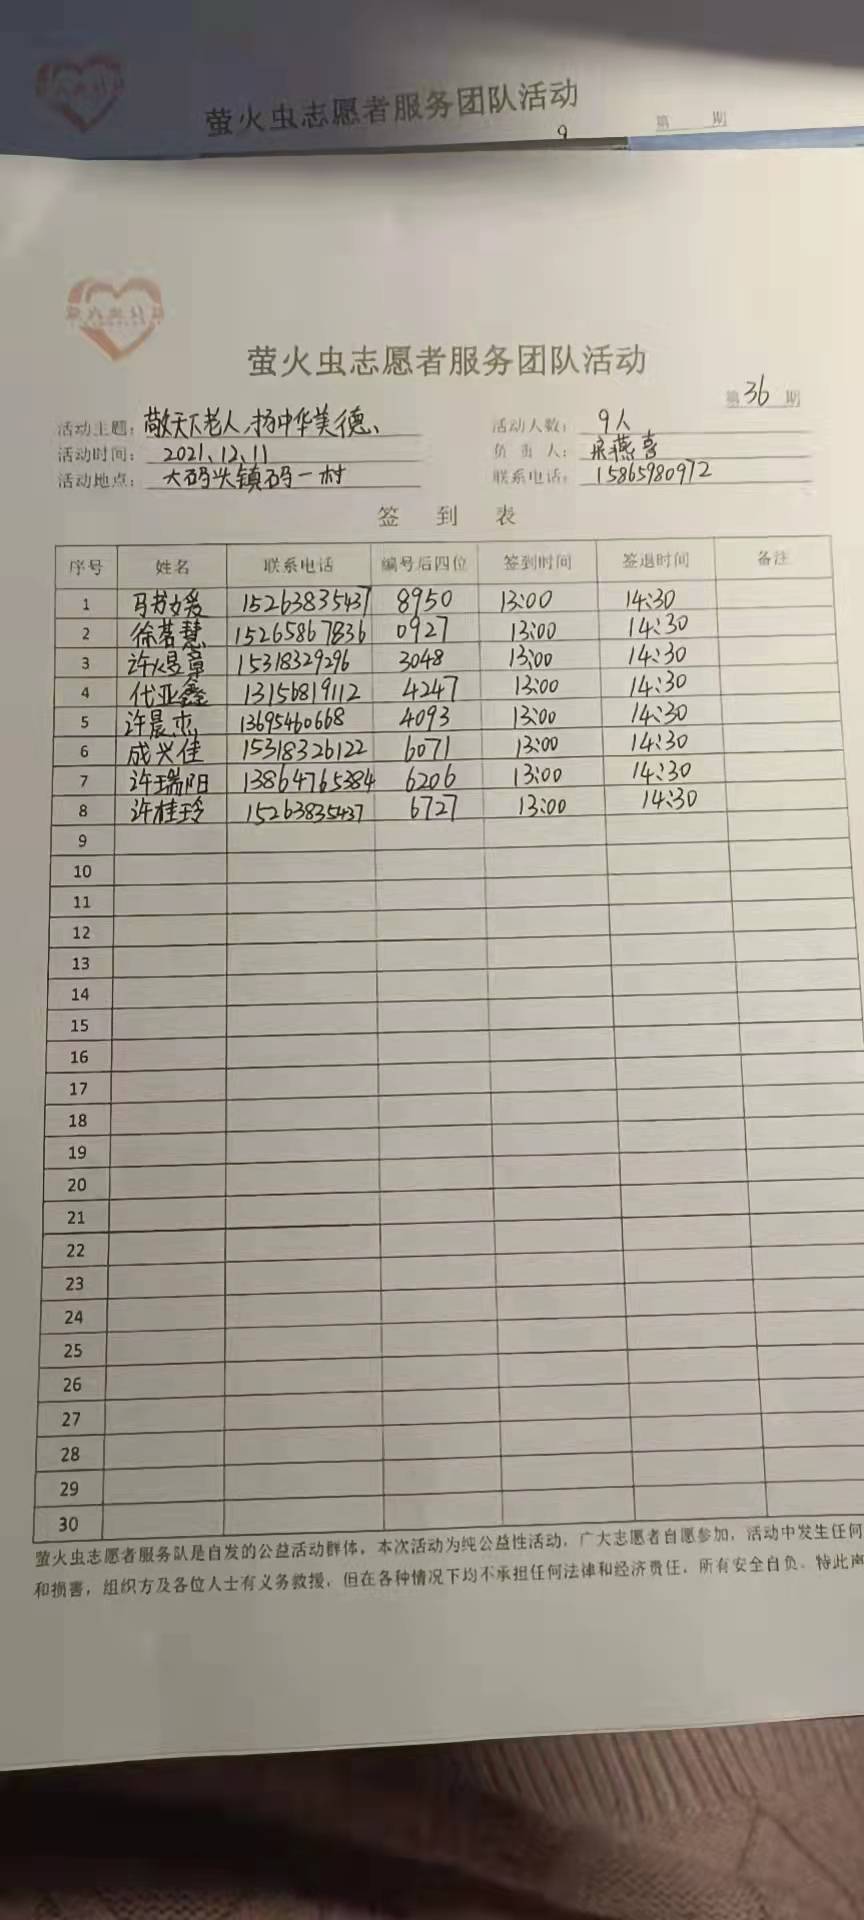 萤火虫志愿者服务团队活动
第 期
9
萤火虫志愿者服务团队活动
第36期
活动主题：敬天下老人、扬中华美德、 活动人数：9人
活动时间：2021.12.11 负责人：燕喜
活动地点：大码头镇码一村 联系电话：15865980972
签到表
序号 姓名 联系电话 编号后四位 签到时间 签退时间 备注
1 马艺媛 15263835437 8950 13:00 14:30
2 徐若慧 15265867836 0927 13:00 14:30
3 许煜章 15318329296 3048 13:00 14:30
4 代亚鑫 13156819112 4247 13:00 14:30
5 许晨杰 13695460668 4093 13:00 14:30
6 成兴佳 15318326122 6071 13:00 14:30
7 许瑞阳 13864765384 6206 13:00 14:30
8 许桂玲 15263835437 6727 13:00 14:30
9
10
11
12
13
14
15
16
17
18
19
20
21
22
23
24
25
26
27
28
29
30
萤火虫志愿者服务队是自发的公益活动群体，本次活动为纯公益性活动，广大志愿者自愿参加，活动中发生任何
和损害，组织方及各位人士有义务救援，但在各种情况下均不承担任何法律和经济责任，所有安全自负。特此声